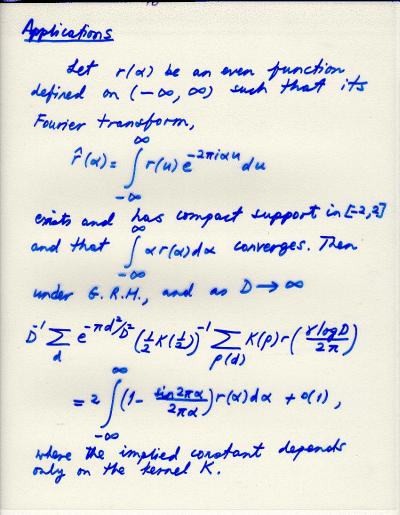 Applications
Let r(α) be an even function
defined on (-∞, ∞) such that its
Fourier transform,
r̂(α) = ∫_{-∞}^{∞} r(u) e^{-2πiαu} du
exists and has compact support in [-2,2]
and that ∫_{-∞}^{∞} α r(α) dα converges. Then
under G.R.H., and as D → ∞
D^{-1} Σ_d e^{-πd²/D²} (½ K(½))^{-1} Σ_{ρ(d)} K(ρ) r(γ log D / 2π)
= 2 ∫_{-∞}^{∞} (1 - sin 2πα / 2πα) r(α) dα + o(1),
where the implied constant depends
only on the kernel K.